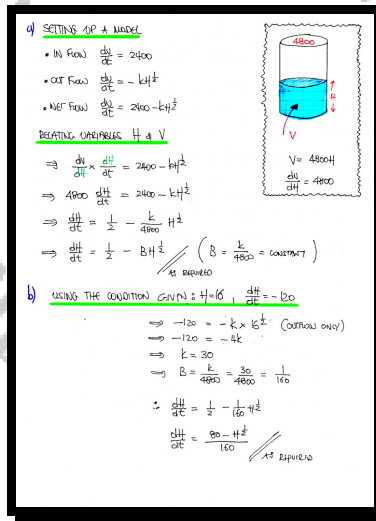 a) SETTING UP A MODEL
• IN FLOW dv/dt = 2400
• OUT FLOW dv/dt = - kH^½
• NET FLOW dv/dt = 2400 - kH^½
RELATING VARIABLES H & V
⇒ dv/dH × dH/dt = 2400 - kH^½
⇒ 4800 dH/dt = 2400 - kH^½
⇒ dH/dt = 1/2 - k/4800 H^½
⇒ dH/dt = 1/2 - BH^½ (B = k/4800 = CONSTANT)
AS REQUIRED
4800
H
V
V = 4800H
dv/dH = 4800
b) USING THE CONDITION GIVEN : H=16, dH/dt = -120
⇒ -120 = -k × 16^½ (OUTFLOW ONLY)
⇒ -120 = -4k
⇒ k = 30
⇒ B = k/4800 = 30/4800 = 1/160
∴ dH/dt = 1/2 - 1/160 H^½
dH/dt = 80 - H^½/160
AS REQUIRED